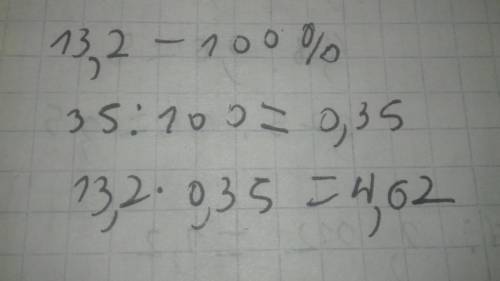 13,2 – 100%
35:100 = 0,35
13,2·0,35 = 4,62